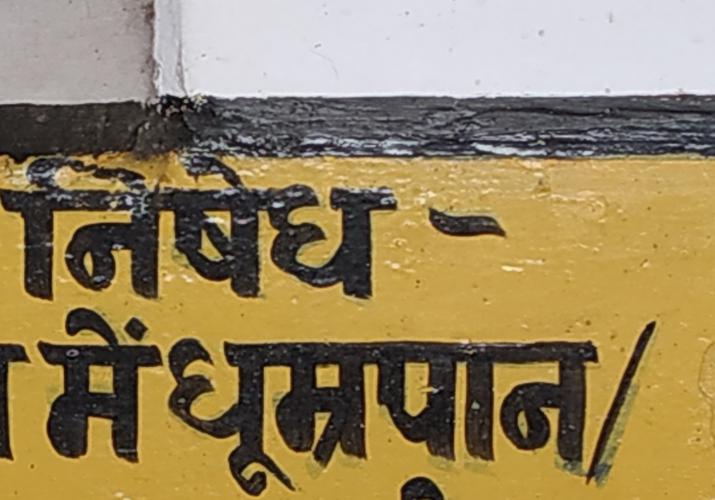 निषेध -
में धूम्रपान/